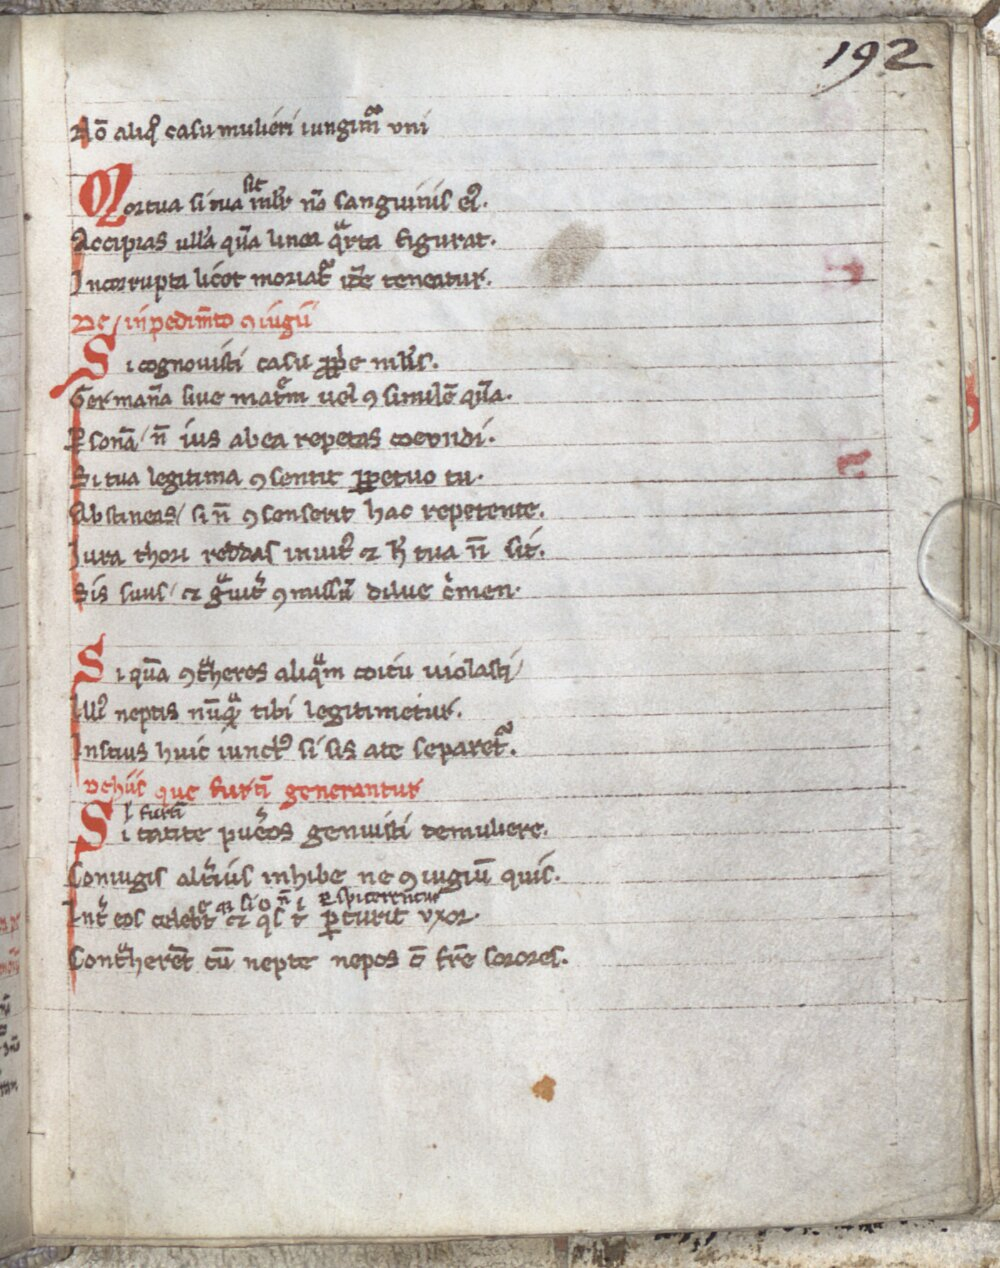 192
Nō aliq̄ casu mulieri iungim̄ vni
sit
Mortua si tua mlr̄ nō sanguinis ei᷒.
Accipias ulla quā linea qͣrta figurat.
Incorrupta licet moriat᷑ teneatur.
De inpedim̄to ꝯiugii
Si cognouisti casu ꝓpͥe mlr̄is.
Germanā siue matrē uel ꝯsimilē quā.
Ꝑsonā n̄ ius ab ea repetas coeundi.
Si tua legitima ꝯsentit ꝑpetuo tu.
Abstineas/ si n̄ ꝯsenserit hac repetente.
Iura thori reddas inuit᷒ ⁊ tua n̄ sit.
Sis suus/ ⁊ gͣuit᷑ ꝯmissū dilue cͥmen.
Si quā ꝯtͣheres aliqͣm coitu uiolasti/
Illi᷒ neptis nūqͣ tibi legitimetur.
Inscius huic iunct᷒ si sis a te separet᷑.
De hiis que furtī generantur
furtī
Si tacite pueros genuisti de muliere.
Coniugis alt᷑ius inhibe ne ꝯiugiū quis.
Int᷑ eos celebr̄t ⁊ ꝑturit vxor.
Contͣherēt cū nepte nepos cū frē sorores.